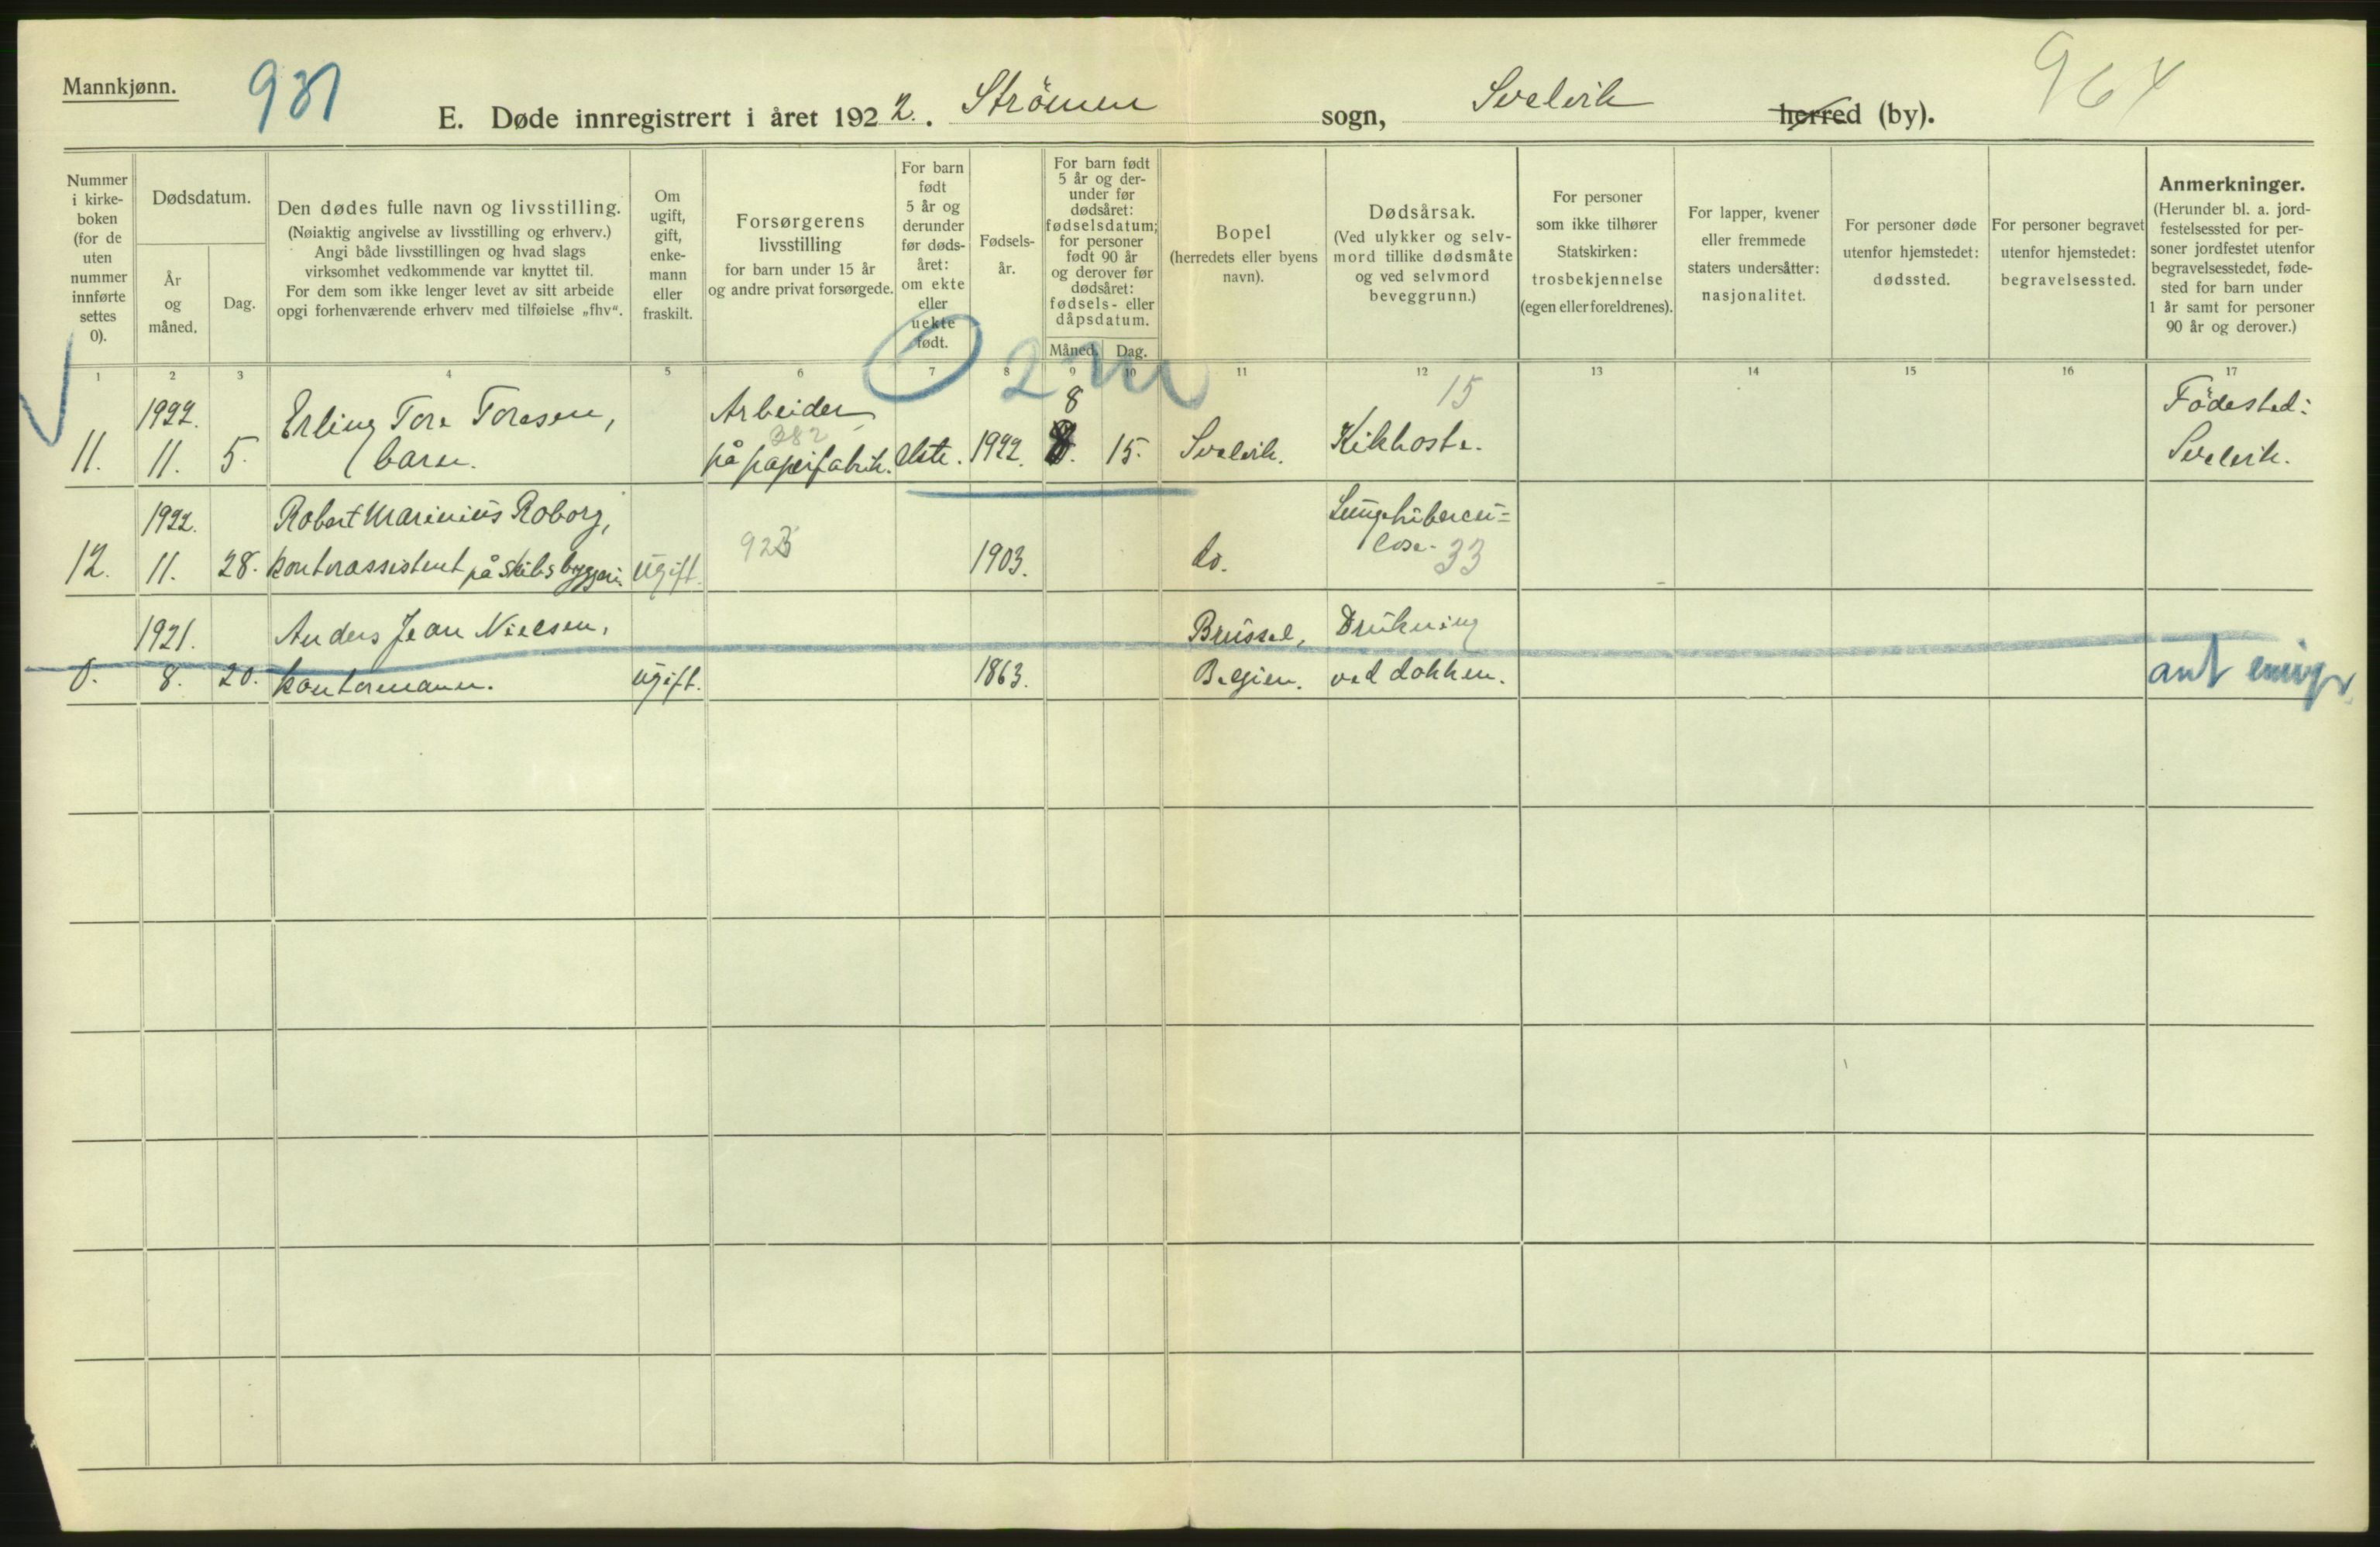 Mannkjønn.
931
964
E. Døde innregistrert i året 1922. Strömm sogn, Svelvik herred (by).
Nummer
i kirke-
boken
(for de
uten
nummer
innførte
settes
0).
Dødsdatum.
År
og
måned.
Dag.
Den dødes fulle navn og livsstilling.
(Nøiaktig angivelse av livsstilling og erhverv.)
Angi både livsstillingen og hvad slags
virksomhet vedkommende var knyttet til.
For dem som ikke lenger levet av sitt arbeide
opgi forhenværende erhverv med tilføielse „fhv“.
Om
ugift,
gift,
enke-
mann
eller
fraskilt.
Forsørgerens
livsstilling
for barn under 15 år
og andre privat forsørgede.
For barn
født
5 år og
derunder
før døds-
året:
om ekte
eller
uekte
født.
Fødsels-
år.
For barn født
5 år og der-
under før
dødsåret:
fødselsdatum;
for personer
født 90 år
og derover før
dødsåret:
fødsels- eller
dåpsdatum.
Måned. Dag.
Bopel
(herredets eller byens
navn).
Dødsårsak.
(Ved ulykker og selv-
mord tillike dødsmåte
og ved selvmord
beveggrunn.)
For personer
som ikke tilhører
Statskirken:
trosbekjennelse
(egen eller foreldrenes).
For lapper, kvener
eller fremmede
staters undersåtter:
nasjonalitet.
For personer døde
utenfor hjemstedet:
dødssted.
For personer begravet
utenfor hjemstedet:
begravelsessted.
Anmerkninger.
(Herunder bl. a. jord-
festelsessted for per-
soner jordfestet utenfor
begravelsesstedet, føde-
sted for barn under
1 år samt for personer
90 år og derover.)
1 2 3 4 5 6 7 8 9 10 11 12 13 14 15 16 17
2 m
1922. Erling Tore Toresen, Arbeider 8 15 Födested:
282
11. 11. 5. barn. på papirfabrik. ekte. 1922. 8. 15. Svelvik. Kikhoste. Svelvik.
1922. Robert Marinius Roborg, 923 Lungetubercu=
lose. 33
12. 11. 28. kontorassistent på skibsbyggeri. ugift. 1903. do.
1921. Anders Jean Nielsen, Brüssel, Drukning
0. 8. 20. kontormann. ugift. 1863. Belgien. ved dokken. ant emigr.